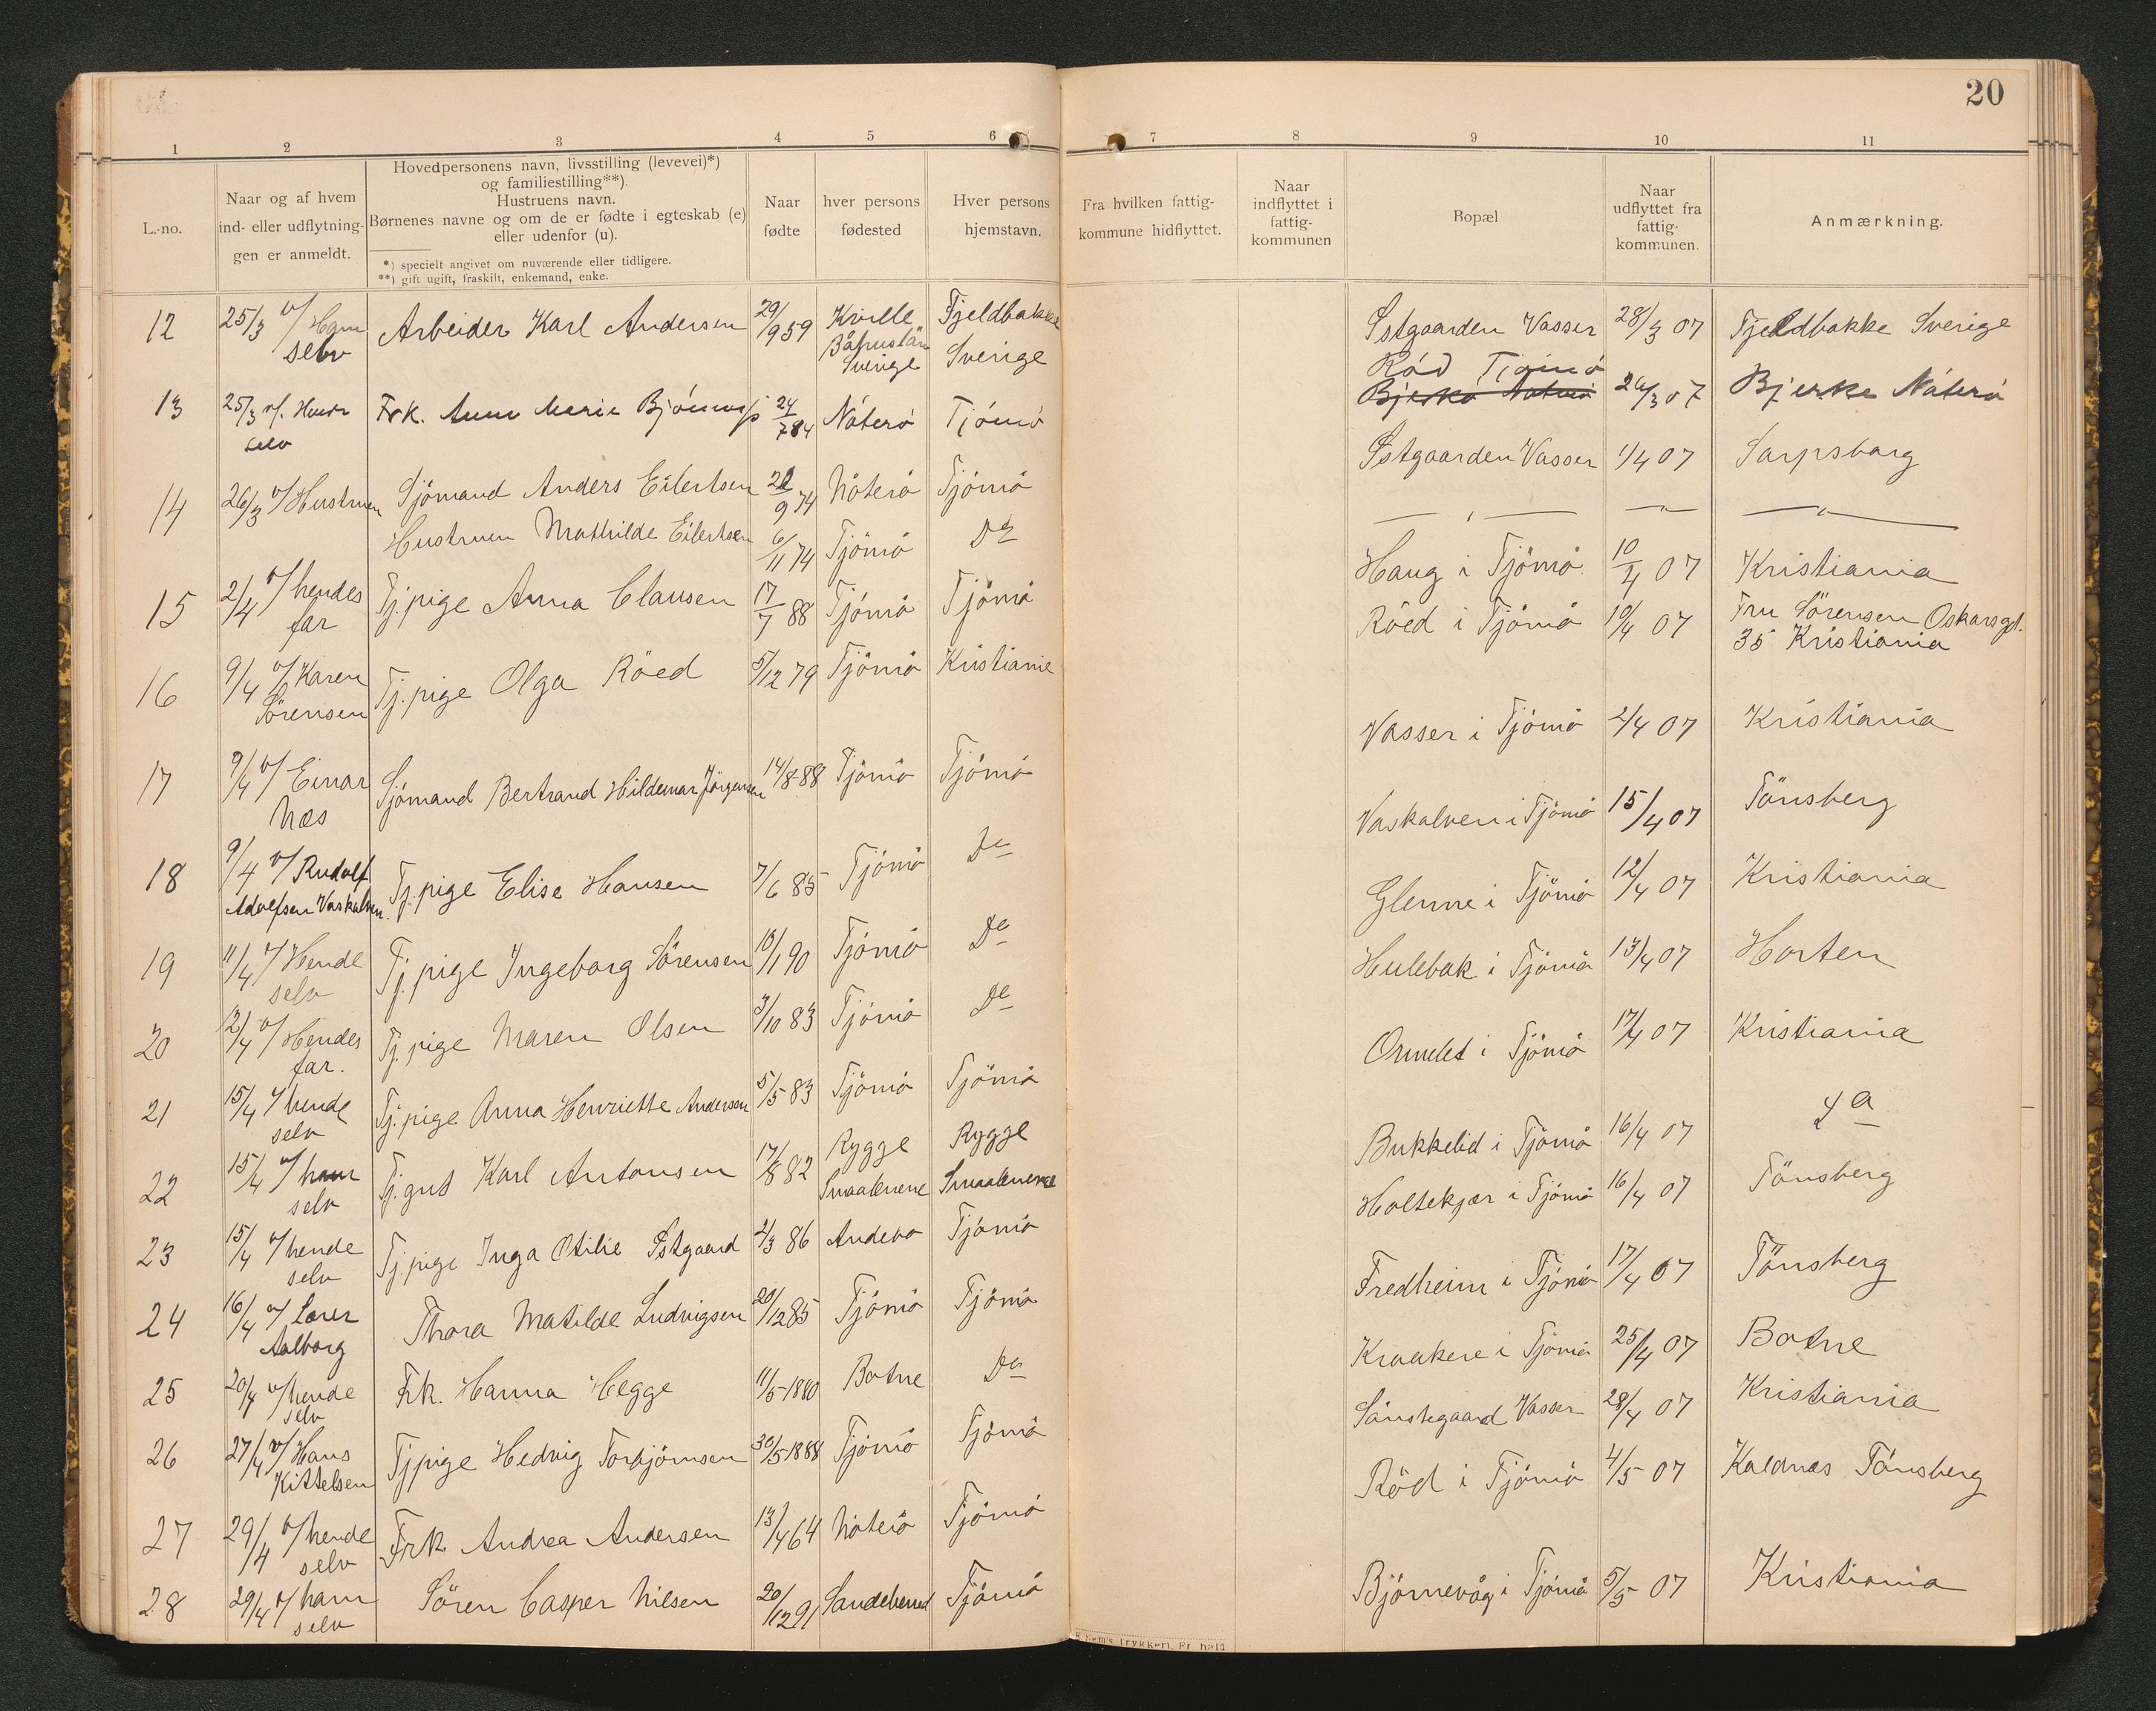 20
1 2 3 4 5 6 7 8 9 10 11
L.-no.
Naar og af hvem
ind- eller udflytning-
gen er anmeldt.
Hovedpersonens navn, livsstilling (levevei)*)
og familiestilling**).
Hustruens navn.
Børnenes navne og om de er fødte i egteskab (e)
eller udenfor (u).
*) specielt angivet om nuværende eller tidligere.
**) gift ugift, fraskilt, enkemand, enke.
Naar
fødte
hver persons
fødested
Hver persons
hjemstavn.
Fra hvilken fattig-
kommune hidflyttet.
Naar
indflyttet i
fattig-
kommunen
Bopæl
Naar
udflyttet fra
fattig-
kommunen.
Anmærkning.
12 25/3 v/ Ham Arbeider Karl Andersen 29/9 59 Kville Fjeldbakke Østgaarden Vasser 28/3 07 Fjeldbakke Sverige
selv Båhuslän Sverige
Sverige
Röd Tjömö
13 25/3 v/. Hende Frk. Anne Marie 24/7 84 Nöterö Tjömö Bjerkö Nöterö 26/3 07 Bjerke Nöterö
selv
14 26/3 v/ Hustruen Sjömand Anders Eilertsen 21/9 74 Nöterö Tjömö Østgaarden Vasser 1/4 07 Sarpsborg
Hustruen Mathilde Eilertsen 6/11 74 Tjömö Do — " — — " — — " —
15 2/4 v/ hendes Tj.pige Anna Clausen 17/7 88 Tjömö Tjömö Haug i Tjömö 10/4 07 Kristiania
far
16 9/4 v/ Karen Tj.pige Olga Röed 5/12 79 Tjömö Kristiania Röed i Tjömö 10/4 07 Fru Sörensen Oskarsgt.
Sörensen 35 Kristiania
17 9/4 v/ Einar Sjömand Bertrand Hildemar Jörgensen 14/8 88 Tjömö Tjömö Vasser i Tjömö 2/4 07 Kristiania
Næs
18 9/4 v/ Rudolf Tj.pige Elise Hansen 7/6 85 Tjömö Do Vaskalven i Tjömö 15/4 07 Tönsberg
Adolfsen Vaskalven.
19 11/4 v/ Hende Tj.pige Ingeborg Sörensen 10/1 90 Tjömö Do Glenne i Tjömö 12/4 07 Kristiania
selv
20 12/4 v/ Hendes Tj.pige Maren Olsen 3/10 83 Tjömö Do Hulebak i Tjömö 13/4 07 Horten
far.
21 15/4 v/ hende Tj.pige Anna Henriette Andersen 5/5 83 Tjömö Tjömö Ormelet i Tjömö 17/4 07 Kristiania
selv
22 15/4 v/ ham Tj.gut Karl Antonsen 17/8 82 Rygge Rygge Bukkelid i Tjömö 16/4 07 Da
selv Smaalenene Smaalenene
23 15/4 v/ hende Tj.pige Inga Otilie Østgaard 2/3 86 Andebo Tjömö Holtekjær i Tjömö 16/4 07 Tönsberg
selv
24 16/4 v/ Lærer Thora Matilde Ludvigsen 20/12 85 Tjömö Tjömö Fredheim i Tjömö 17/4 07 Tönsberg
Aalborg
25 20/4 v/ hende Frk. Hanna Hegge 11/5 1880 Botne Do Kraakere i Tjömö 25/4 07 Botne
selv
26 27/4 v/ Hans Tjpige Hedvig Torbjörnsen 30/5 1888 Tjömö Tjömö Sönstegaard Vasser 28/4 07 Kristiania
Kittelsen
27 29/4 v/ hende Frk. Andrea Andersen 13/4 64 Nöterö Tjömö Röd i Tjömö 4/5 07 Kaldnæs Tönsberg
selv
28 29/4 v/ ham Sören Casper Nilsen 20/12 91 Sandeherred Tjömö Björnevåg i Tjömö 5/5 07 Kristiania
selv